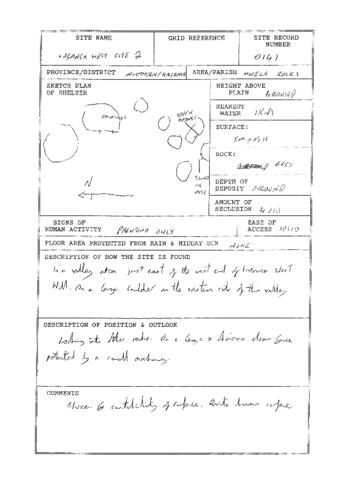 SITE NAME
GRID REFERENCE
SITE RECORD
NUMBER
WEST SITE 2
0141
PROVINCE/DISTRICT NORTHERN/KASAMA
AREA/PARISH MWELA ROCKS
SKETCH PLAN
OF SHELTER
HEIGHT ABOVE
PLAIN GROUND
NEAREST
WATER 1KM
SURFACE:
SMOOTH
ROCK:
GREY
DEPTH OF
DEPOSIT GROUND
AMOUNT OF
SECLUSION 4/10
N
SIGNS OF
HUMAN ACTIVITY PAINTING ONLY
EASE OF
ACCESS 10/10
FLOOR AREA PROTECTED FROM RAIN & MIDDAY SUN NONE
DESCRIPTION OF HOW THE SITE IS FOUND
In a valley area just east of the west end of
On a large boulder on the eastern side of the valley
DESCRIPTION OF POSITION & OUTLOOK
Looking into other rocks. On a large &
protected by a small overhang.
COMMENTS
Chosen for suitability of surface. Quite